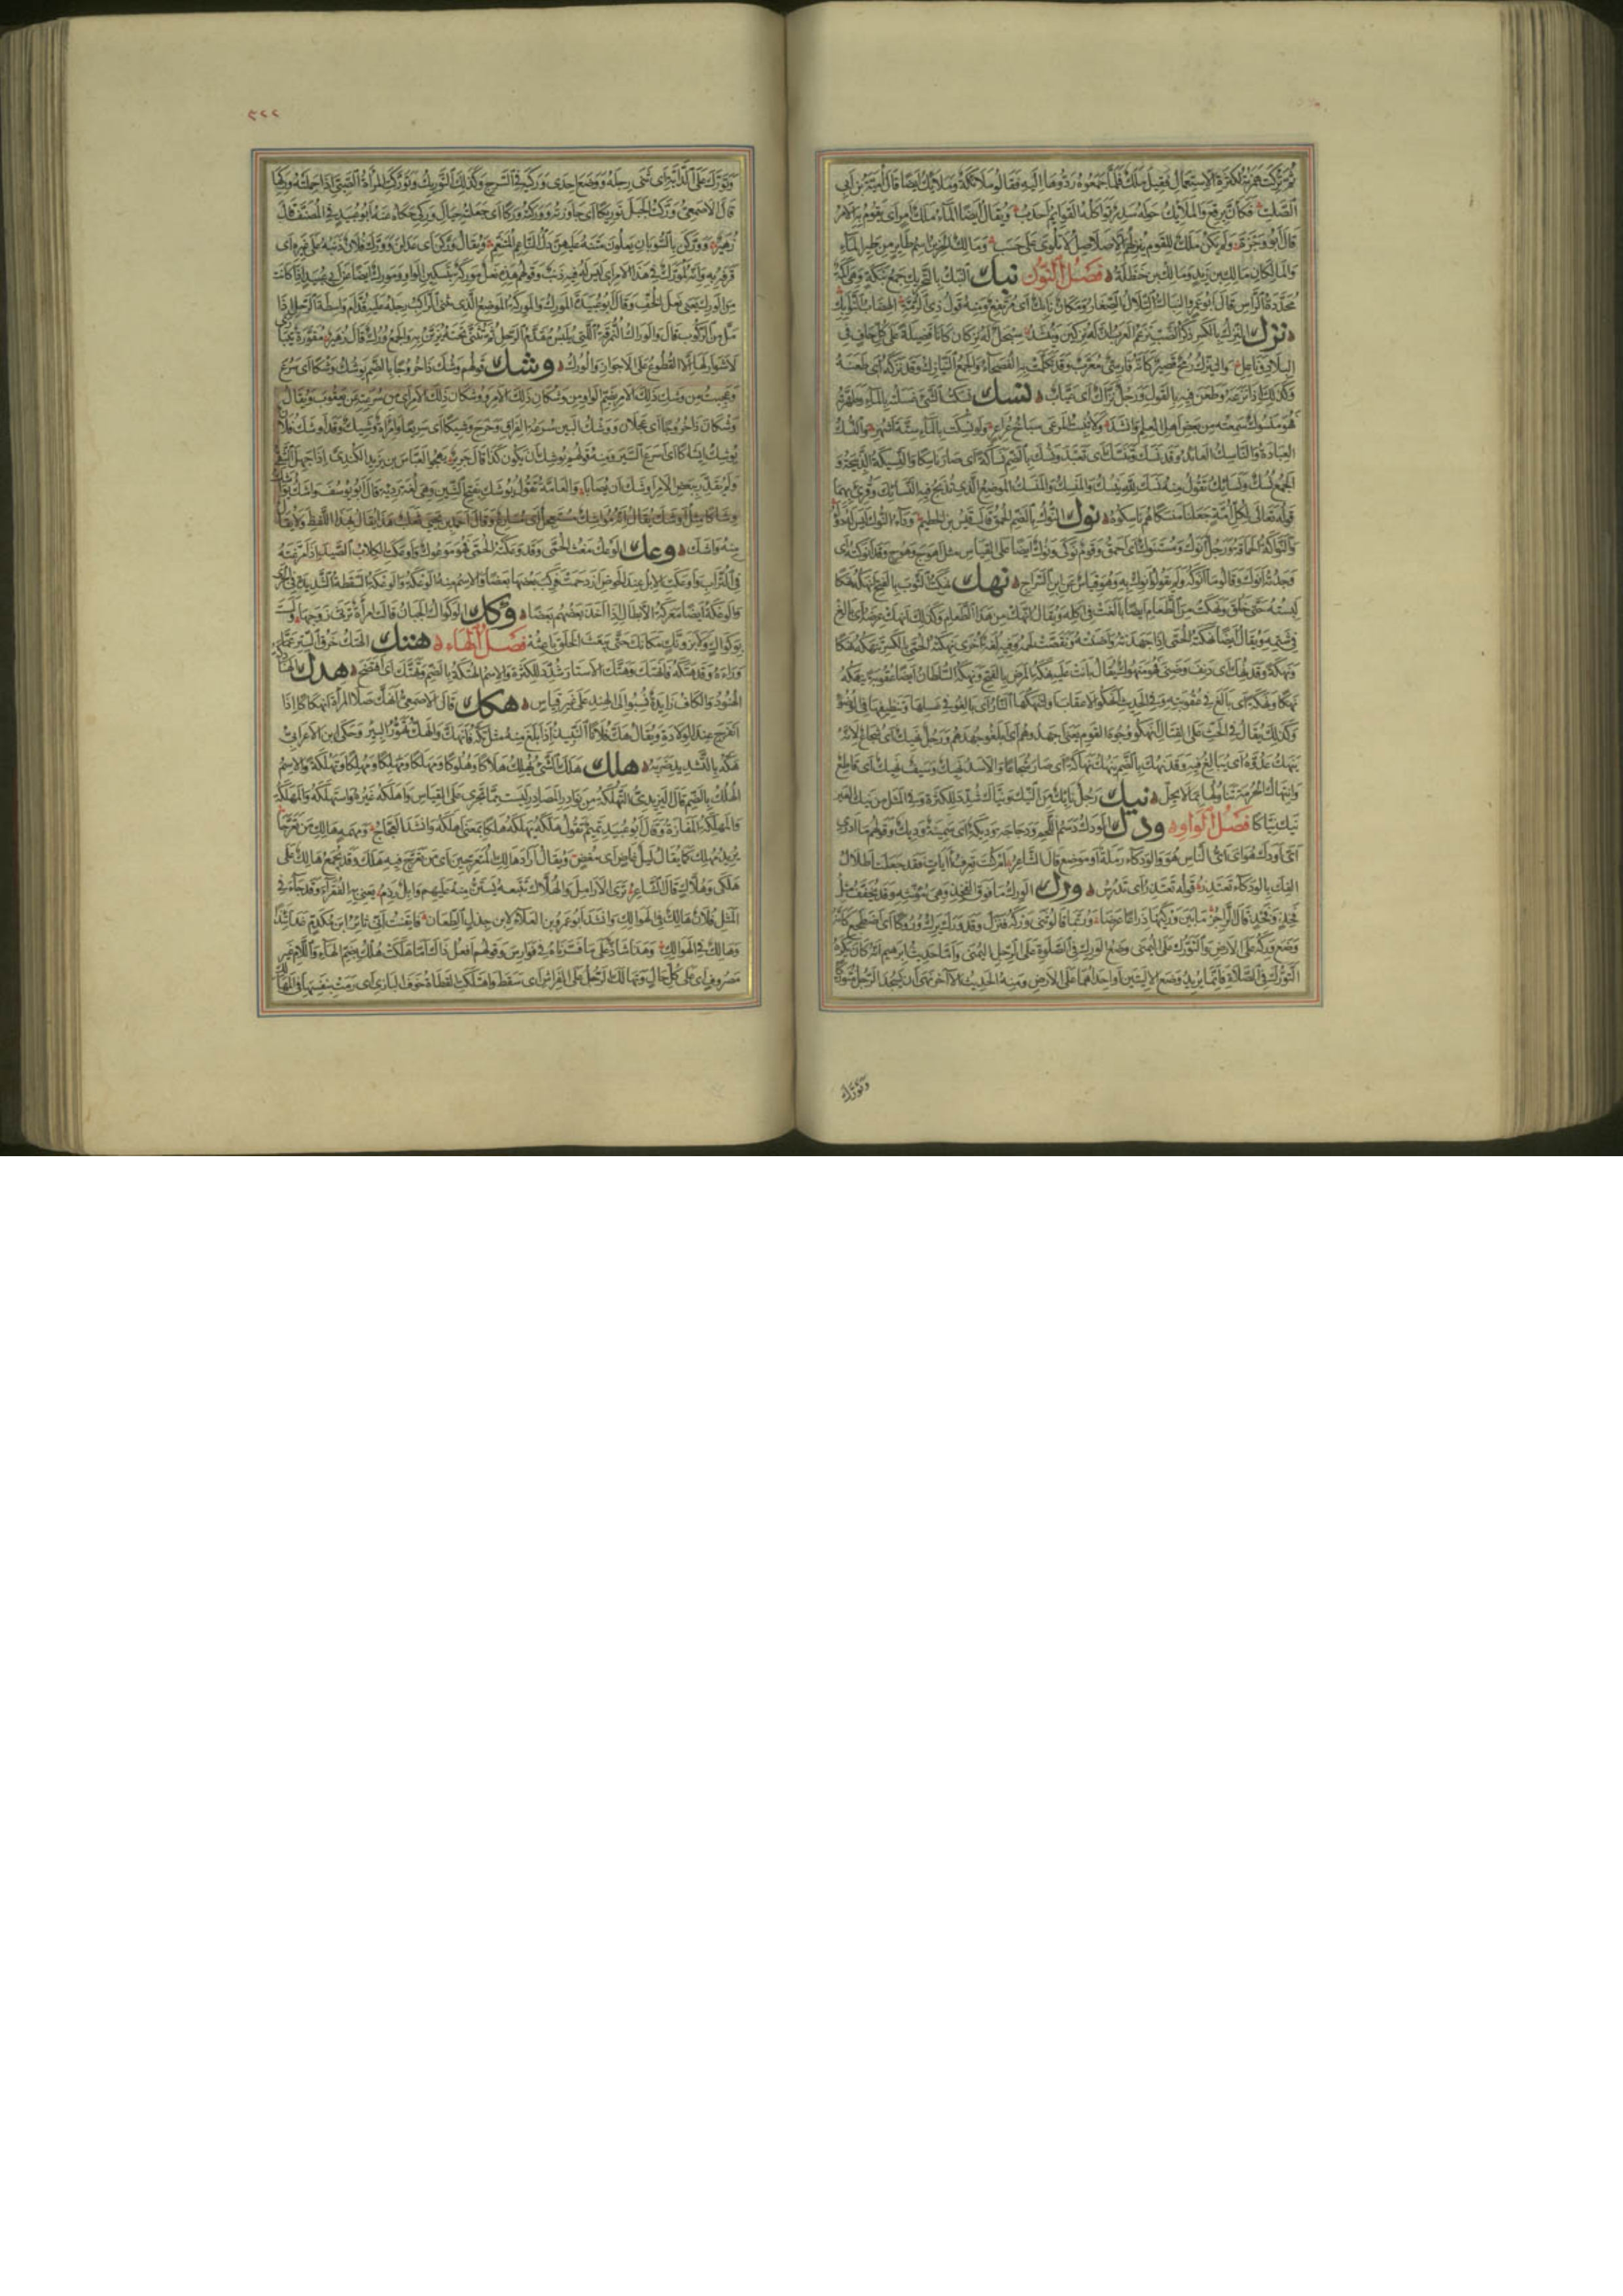 ثم تركت همزته لكثرة الاستعمال فقيل ملك فلما جمعوه ردوها اليه فقالوا ملائكة وملائك ايضا قال امية بن ابى
الصلت فكأن برقع والملائك حوله سدر تواكله القوائم اجرب ويقال ايضا الماء ملك امر اى يقوم به الامر
قال ابو وجزة ولم يكن ملك للقوم ينزلهم الا صلاصل لا تلوى على حسب ومالك الحزين اسم طاير من طير الماء
والمالكان مالك بن زيد ومالك بن حنظلة فصل النون نبك النبك بالتحريك جمع نبكة وهى اكمة
محددة الراس قال ابو عمرو النباك التلال الصغار ومكان نابك اى مرتفع ومنه قول ذى الرمة الهضاب النوابك
نزك النزك بالكسر ذكر الضب تزعم العرب ان له نزكين وينشد سبحل له نزكان كانا فضيلة على كل حاف فى
البلاد وناعل والنيزك رمح قصير كانه فارسى معرب وقد تكلمت به الفصحاء والجمع النيازك وقد نزكه اى طعنه
وكذلك اذا نزغه وطعن فيه بالقول ورجل نزاك اى عياب نسك نسكت الشئ غسلته بالماء وطهرته
فهو منسوك سمعته من بعض اهل العلم وانشد ولا ينبت المرعى سباخ عراعر ولو نسكت بالماء ستة اشهر والنسك
العبادة والناسك العابد وقد نسك وتنسك اى تعبد ونسك بالضم نساكة اى صار ناسكا والنسيكة الذبيحة و
الجمع نسك ونسائك تقول منه نسك لله ينسك والمنسك والمنسك الموضع الذى تذبح فيه النسائك وقرئ بهما
قوله تعالى لكل امة جعلنا منسكا هم ناسكوه نوك النوك بالضم الحمق قال قيس بن الخطيم وداء النوك ليس له دواء
والنواكة الحماقة ورجل انوك ومستنوك اى احمق وقوم نوكى ونوك ايضا على القياس مثل اهوج وهوج وقد انوكته اى
وجدته انوك وقالوا ما انوكه ولم يقولوا انوك به وهو قياس عن ابن السراج نهك نهكت الثوب بالفتح نهكه نهكا
لبسته حتى خلق ونهكت من الطعام ايضا بالغت فى اكله ويقال انهك من هذا الطعام وكذلك انهك عرضه اى بالغ
فى شتمه ويقال ايضا نهكته الحمى اذا جهدته واضنته ونقصت لحمه وفيه لغة اخرى نهكته الحمى بالكسر تنهكه نهكا
ونهكة وقد نهك اى دنف وضنى فهو منهوك يقال بانت عليه نهكة المرض بالفتح ونهكه السلطان ايضا عقوبة ينهكه
نهكا ونهكة اى بالغ فى عقوبته وفى الحديث انهكوا الاعقاب او لتنهكنها النار اى بالغوا فى غسلها وتنظيفها فى الوضوء
وكذلك يقال فى الحث على القتال انهكوا وجوه القوم يعنى اجهدوهم اى ابلغوا جهدهم ورجل نهيك اى شجاع لانه
ينهك عدوه اى يبالغ فيه وقد نهك بالضم ينهك نهاكة اى صار شجاعا والاسد نهيك وسيف نهيك اى قاطع
وانتهاك الحرمة تناولها بما لا يحل نيك رجل نايك من النيك ونياك شدد للكثرة وفى المثل من ينك العير
ينك نياكا فصل الواو ودك الودك دسم اللحم ودجاجة وديكة اى سمينة وديك وقولهم ما ادرى
اى اودك هو اى اى الناس هو والودكاء رملة او موضع قال الشاعر ام كنت تعرف ايات فقد جعلت اطلال
الفك بالودكاء تعتذر قوله تعتذر اى تدرس ورك الورك ما فوق الفخذ وهى مؤنثة وقد تخفف مثل
فخذ وفخذ قال الراجز ما بين وركيها ذراعا عرضا وربما قالوا ثنى وركه فنزل وقد ورك يرك وروكا اى اضطجع كانه
وضع وركه على الارض والتورك على اليمنى وضع الورك فى الصلوة على الرجل اليمنى واما حديث ابرهيم انه كان يكره
التورك فى الصلاة فانما يريد وضع الاليتين او احداهما على الارض ومنه الحديث الاخر نهى ان يسجد الرجل متوركا
وتورك
٣٢٢
وتورك على الدابة اى ثنى رجله ووضع احدى وركيه فى السرج وكذلك التوريك وتوركت المراة الصبى اذا حملته على وركها
قال الاصمعى وركت الجبل توريكا اى جاوزته ووركته وركا اى جعلته حيال وركى حكاه عنه ابو عبيد فى المصنف قال
زهير ووركن بالسوبان يعلون متنه عليهن دل الناعم المتنعم ويقال وركن اى عدلن وورك فلان ذنبه على غيره اى
قرفه به وانه لمورك فى هذا الامر اى ليس له فيه ذنب وقولهم هذه نعل موركة بتسكين الواو ومورك ايضا عن ابى عبيد اذا كانت
من الورك يعنى نعل الخف وقال ابو عبيدة المورك والموركة الموضع الذى يثنى الراكب رجله عليه قدام واسطة الرحل اذا
مل من الركوب قال والوراك النمرقة التى تلبس مقدم الرحل ثم تثنى تحته يزين به والجمع ورك قال زهير مقورة تتبارى
لا شوار لها الا القطوع على الاجواز والورك وشك قولهم وشك ذا خروجا بالضم يوشك وشكا اى سرع
وعجبت من وشك ذلك الامر بضم الواو ومن وشكان ذلك الامر ووشكان ذلك الامر اى من سرعته عن يعقوب ويقال
وشكان ذا خروجا اى عجلان ووشك البين سرعة الفراق وخرج وشيكا اى سريعا وامراة وشيك وقد اوشك فلان
يوشك ايشاكا اى اسرع السير ومنه قولهم يوشك ان يكون كذا قال جرير يهجو العباس بن يزيد الكندى اذا جهل الشقى
ولم يقدر ببعض الامر اوشك ان يصابا والعامة تقول يوشك بفتح الشين وهى لغة ردية قال ابو يوسف واشك يواشك
وشاكا مثل اوشك يقال انه مواشك مستعجل اى مسارع وقال احمد بن يحيى ثعلب هذا يقال بهذا اللفظ ولا يقال
منه واشك وعك الوعك مغث الحمى وقد وعكته الحمى فهو موعوك واوعكت الكلاب الصيد اذا مرغته
فى التراب واوعكت الابل عند الحوض ازدحمت فركب بعضها بعضا والاسم منه الوعكة والوعكة السقطة الشديدة فى الجرى
والوعكة ايضا معركة الابطال اذا اخذ بعضهم بعضا وكك الوكواك الجبان قالت امراة ترثى زوجها ولست
بوكواك ولا بزونك مكانك حتى يبعث الخلق باعثه فصل الهاء هتك الهتك خرق الستر عما
وراءه وقد هتكه فانهتك وهتك الاستار شدد للكثرة والاسم الهتكة بالضم وتهتك اى افتضح هدك
الهنود والكاف زايدة نسبوا الى الهند على غير قياس هكك قال الاصمعى انهك صلا المراة انهكاكا اذا
انفرج عند الولادة ويقال هك فلانا النبيذ اذا بلغ منه مثل تكه فانهك والهك تهور البير وحكى ابن الاعرابى
هكه بالسيف ضربه هلك هلك الشئ يهلك هلاكا وهلوكا ومهلكا ومهلكا ومهلكا وتهلكة والاسم
الهلك بالضم قال اليزيدى التهلكة من نوادر المصادر ليست مما تجرى على القياس واهلكه غيره واستهلكه والمهلكة
والمهلكة المفازة وقال ابو عبيد تميم تقول هلكه يهلكه هلكا بمعنى اهلكه وانشد العجاج ومهمه هالك من تعرجا
يريد مهلك كما يقال ليل غاض اى مغض ويقال اراد هالك المتعرجين اى من تعرج فيه هلك وقد يجمع هالك على
هلكى وهلاك قال الشاعر ترى الارامل والهلاك تتبعه يستن منه عليهم وابل رذم يعنى به الفقراء وقد جاء فى
المثل فلان هالك فى الهوالك وانشد ابو عمرو بن العلاء لابن جذل الطعان فايقنت انى ثاير ابن مكدم غداتئذ
وهالك فى الهوالك وهذا شاذ على ما فسرناه فى فوارس وقولهم افعل ذاك اما هلكت هلك بضم الهاء واللام غير
مصروف اى على كل حال وتهالك الرجل على الفراش اى سقط واهتلكت القطاة خوف البازى اى رمت بنفسها فى المهالك